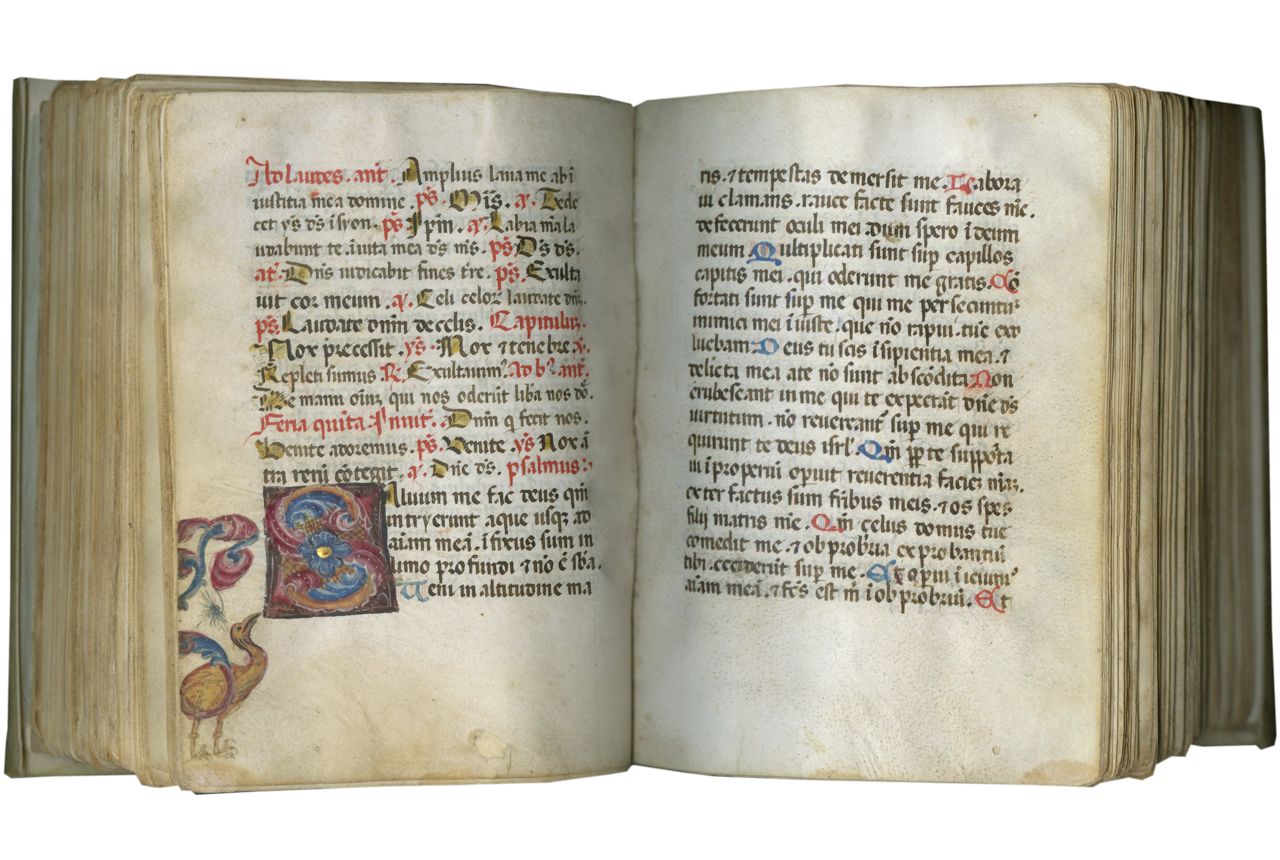 Ad laudes. ant̃. Amplius laua me ab ĩ
iustitia mea domine. ps̃. Mis̃. a. Tede
cet ys ds̃ i syon. ps̃ Ipm̃. a. Labia mea la
udabunt te. ĩ uita mea ds̃ ms̃. ps̃ Ds̃ ds̃.
at̃. Dns̃ iudicabit fines tr̃e. ps̃. Exulta
uit cor meum. a. Celi celoꝝ laudate dm̃.
ps̃. Laudate dnm̃ de celis. Capitulũ.
Nox precessit. ys̃. Mox ⁊ tenebre. y.
Repleti sumus R. Exultauim᷒. Ad b᷒. ant̃.
De manu oĩuz qui nos oderũt liba nos dõ.
Feria quĩta. Inuit᷒. Dnm̃ q̃ fecit nos.
Venite adoremus. ps̃. Venite. ys̃ Nox ĩ
tra reni cõtegit. a. Dñe ds̃. psalmus:
Aluum me fac deus qm̃
intrauerunt aque usqz ad
aĩam meã. ĩfixus sum in
limo profundi ⁊ nõ ẽ sb̃a.
Ueni in altitudine ma
ris. ⁊ tempestas demersit me. Labora
ui clamans. rauce facte sunt fauces me̅.
defecerunt oculi mei dum spero ĩ deum
meum Multiplicati sunt sup̱ capillos
capitis mei. qui oderunt me gratis. Cõ
fortati sunt sup̱ me qui me persecuntur
inimici mei ĩiuste. que nõ rapui. tuc̃ exo
luebam. Deus tu scis ĩsipientia mea. ⁊
delicta mea a te nõ sunt abscõdita Non
erubescant in me qui te expectãt dñe ds̃
uirtutum. nõ reuereant᷒ sup̱ me qui re
quirunt te deus isrl̃. Qm̃ ꝓpt̃ te suppõta
ui ĩproperiũ. opuit reuerentia faciez meã.
exter factus sum fr̃ibus meis. ⁊ os̃pes
filij matris me̅. Qm̃ çelus domus tue
comedit me. ⁊ obprobria exprobantiũ
tibi. ceciderũt sup̱ me. Et op̱ui ĩ ieiuni᷒
aĩam meã. ⁊ fc̃s est m̃ ĩ obprobriũ. Et